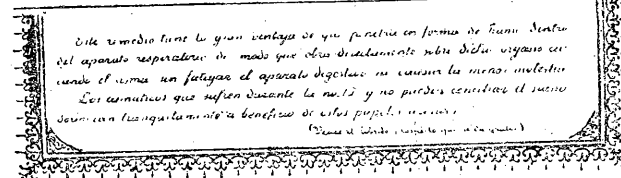 Este remedio tiene la gran ventaja de que penetra en forma de humo dentro
del aparato respiratorio de modo que obra directamente sobre dicho organo
el asma sin fatigar el aparato digestivo ni causar la menor molestia
Los asmaticos que sufren durante la noche y no pueden conciliar el sueño
dormiran tranquilamente a beneficio de estos papeles